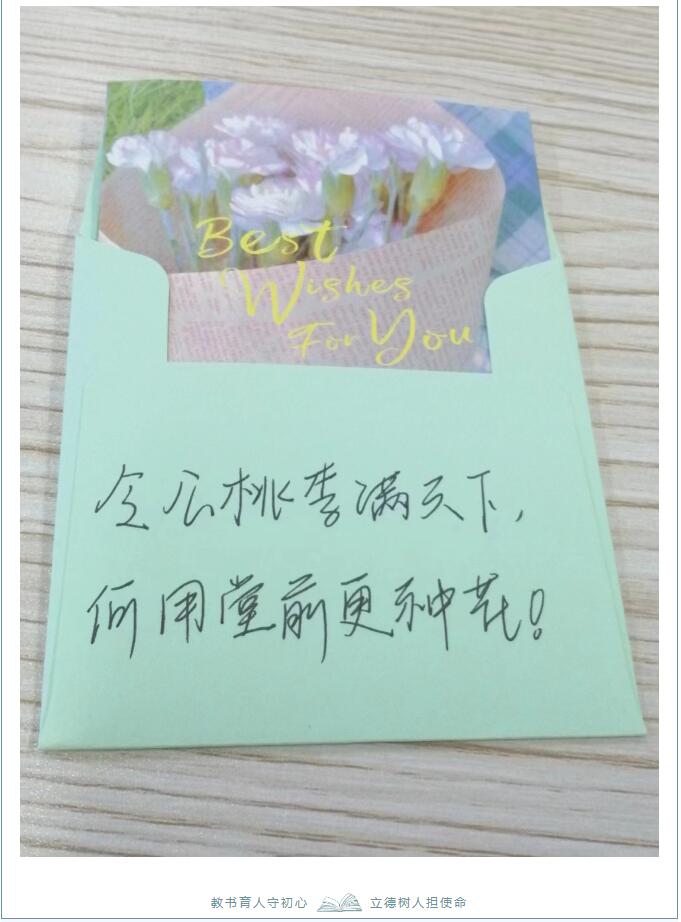 Best
Wishes
For You
令公桃李满天下,
何用堂前更种花!
教书育人守初心 立德树人担使命